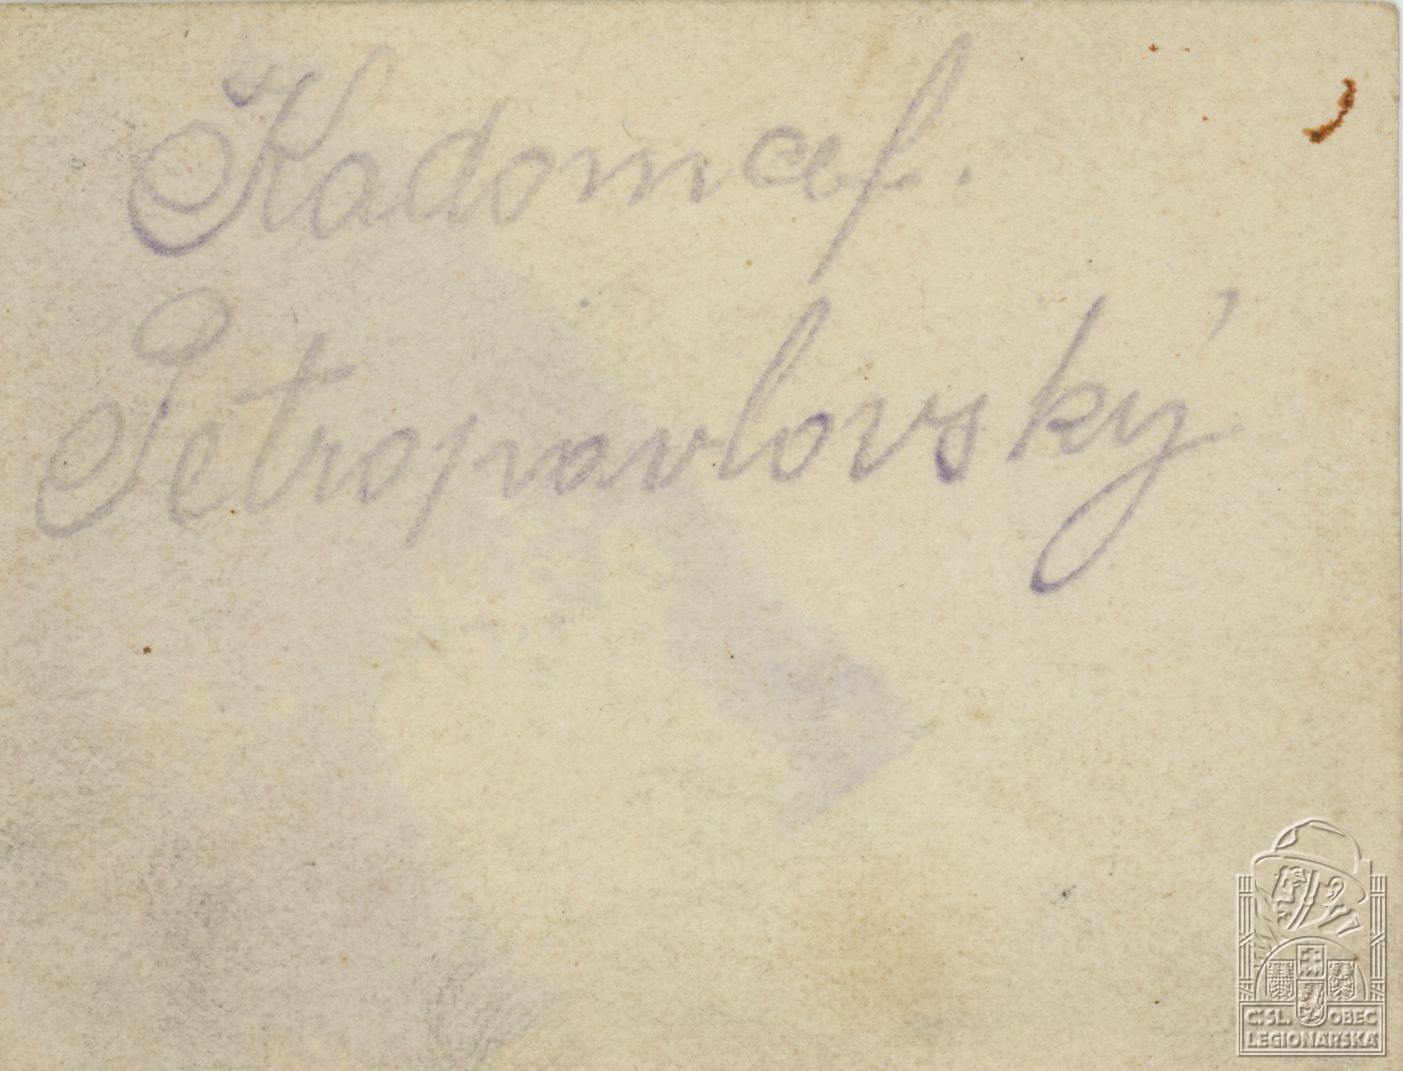 Kadomcef.
Petropavlovský
Č.SL. OBEC
LEGIONÁŘSKÁ